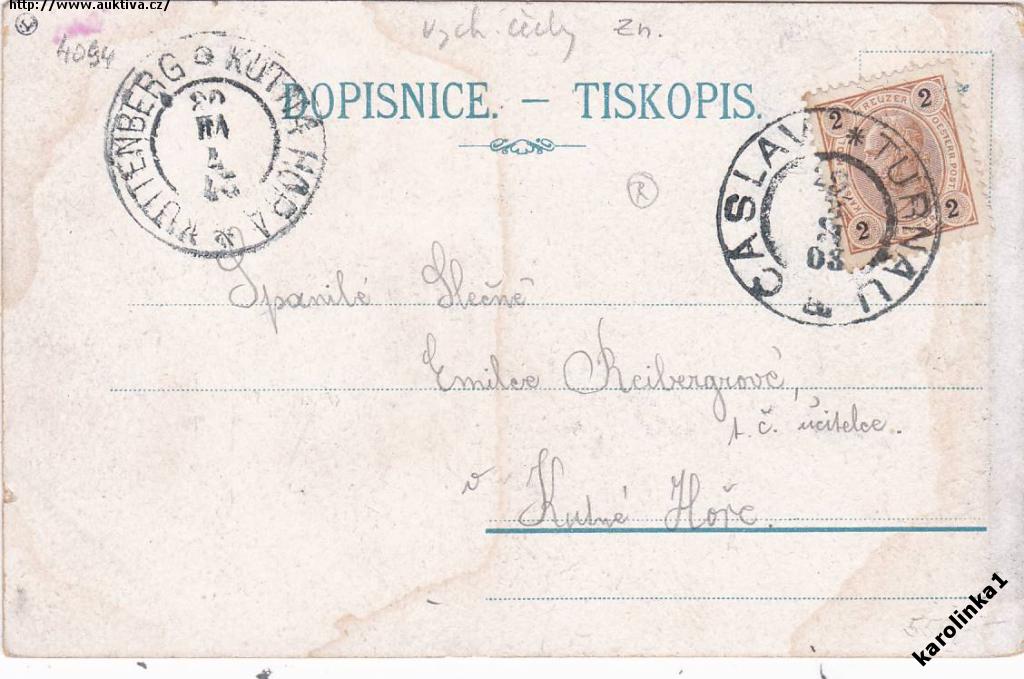 http://www.auktiva.cz/
4094
vých. čechy zn.
DOPISNICE. – TISKOPIS.
KUTTENBERG KUTNÁ HORA
2 KREUZER 2
2 2
ČASLAV * TURNAU
03
R
Spanilé Slečně
Emilce Reibergrové,
t. č. učitelce.
v Kutné Hoře.
karolinka1